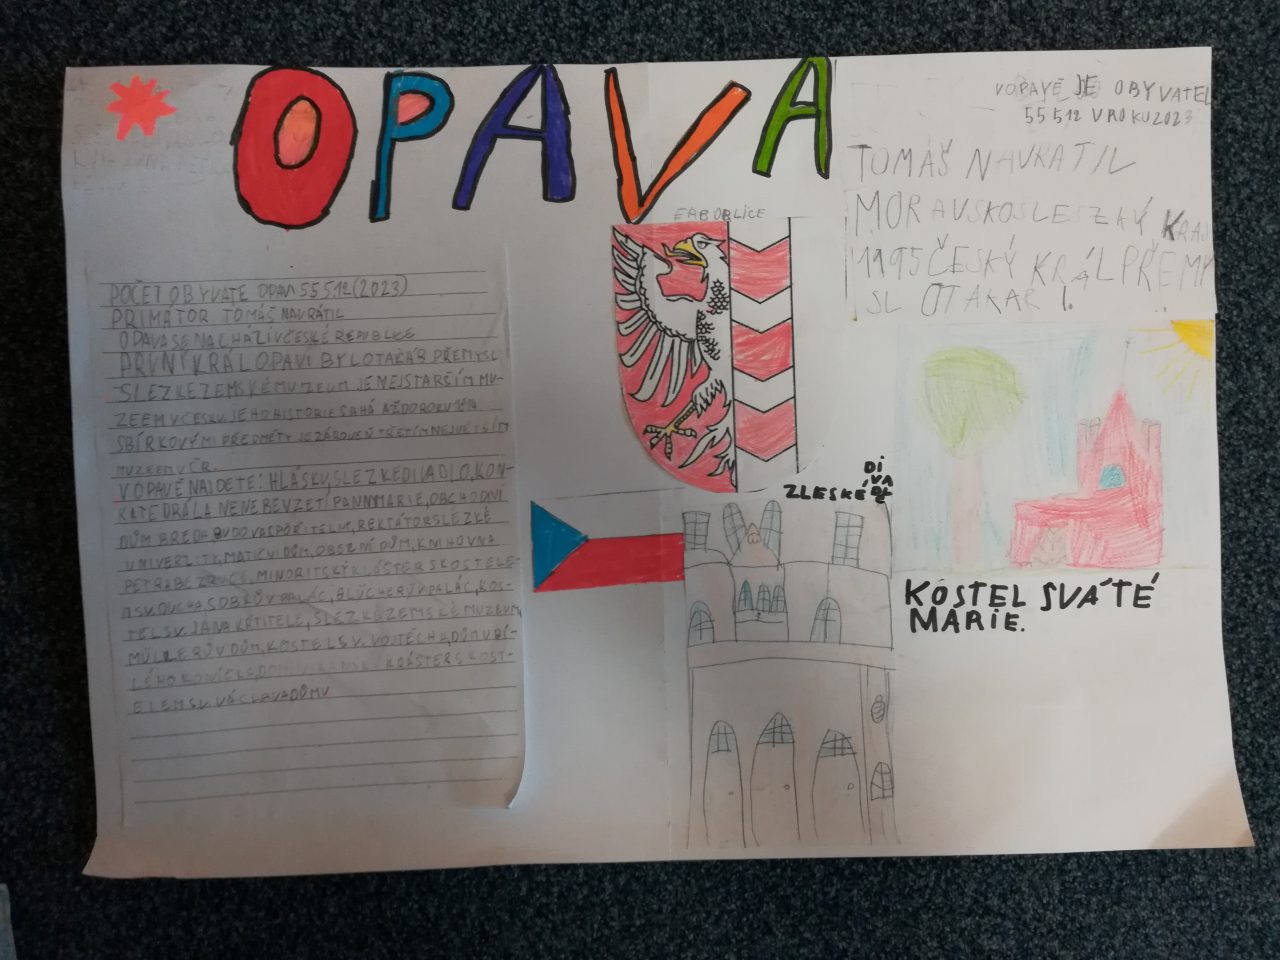 OPAVA
V OPAVĚ JE OBYVATEL
55 512 V ROKU 2023
TOMÁŠ NAVRÁTIL
MORAVSKOSLESZKÝ KRAJ
1195 ČESKÝ KRÁL PŘEMY
SL OTAKAR I.
POČET OBYVATE OPAV 55 512 (2023)
PRIMÁTOR TOMÁŠ NAVRÁTIL
OPAVA SE NACHÁZÍ V ČESKÉ REPUBLICE
PRVNÝ KRÁL OPAVI BYL OTAKAR PŘEMYSL
SLEZKE ZEMSKÉ MUZEUM JE NEJSTARŠÍM MU-
ZEEM V ČESKU. JEHO HISTORIE SAHÁ AŽ DO ROKU 1814
SBÍRKOVÝMI PŘEDMĚTY JE ZÁROVEŇ TŘETÍM NEJVĚTŠÍM
MUZEEM V ČR.
V OPAVĚ NAJDETE: HLÁSKU, SLEZKE DIVADLO, KON-
KATEDRÁLA NENEBEVZETÍ PANNY MARIE, OBCHODNÍ
DŮM BREDA BUDOVA SPOŘITELNÍ, REKTÁTOR SLEZKÉ
UNIVERZITY, MATIČNÍ DŮM, OBECNÍ DŮM, KNIHOVNA
PETRA BEZRUČE, MINORITSKÝ KLÁŠTER S KOSTELE-
M SV. DUCHA, SOBKŮV PALÁC, BLÜCHERŮV PALÁC, KOS-
TEL SV. JÁNA KŘTITELE, SLEZKÉ ZEMSKÉ MUZEUM,
MÜLLERŮV DŮM, KOSTEL SV. VOJTĚCHA, DŮM U BÍ-
LÉHO KONÍČKA, DOMINIKÁNSKÝ KLÁŠTER S KOST-
ELEM SV. VÁCLAVA DŮMU
ZLESKÉ DIVADL
KOSTEL SVÁTÉ
MARIE.